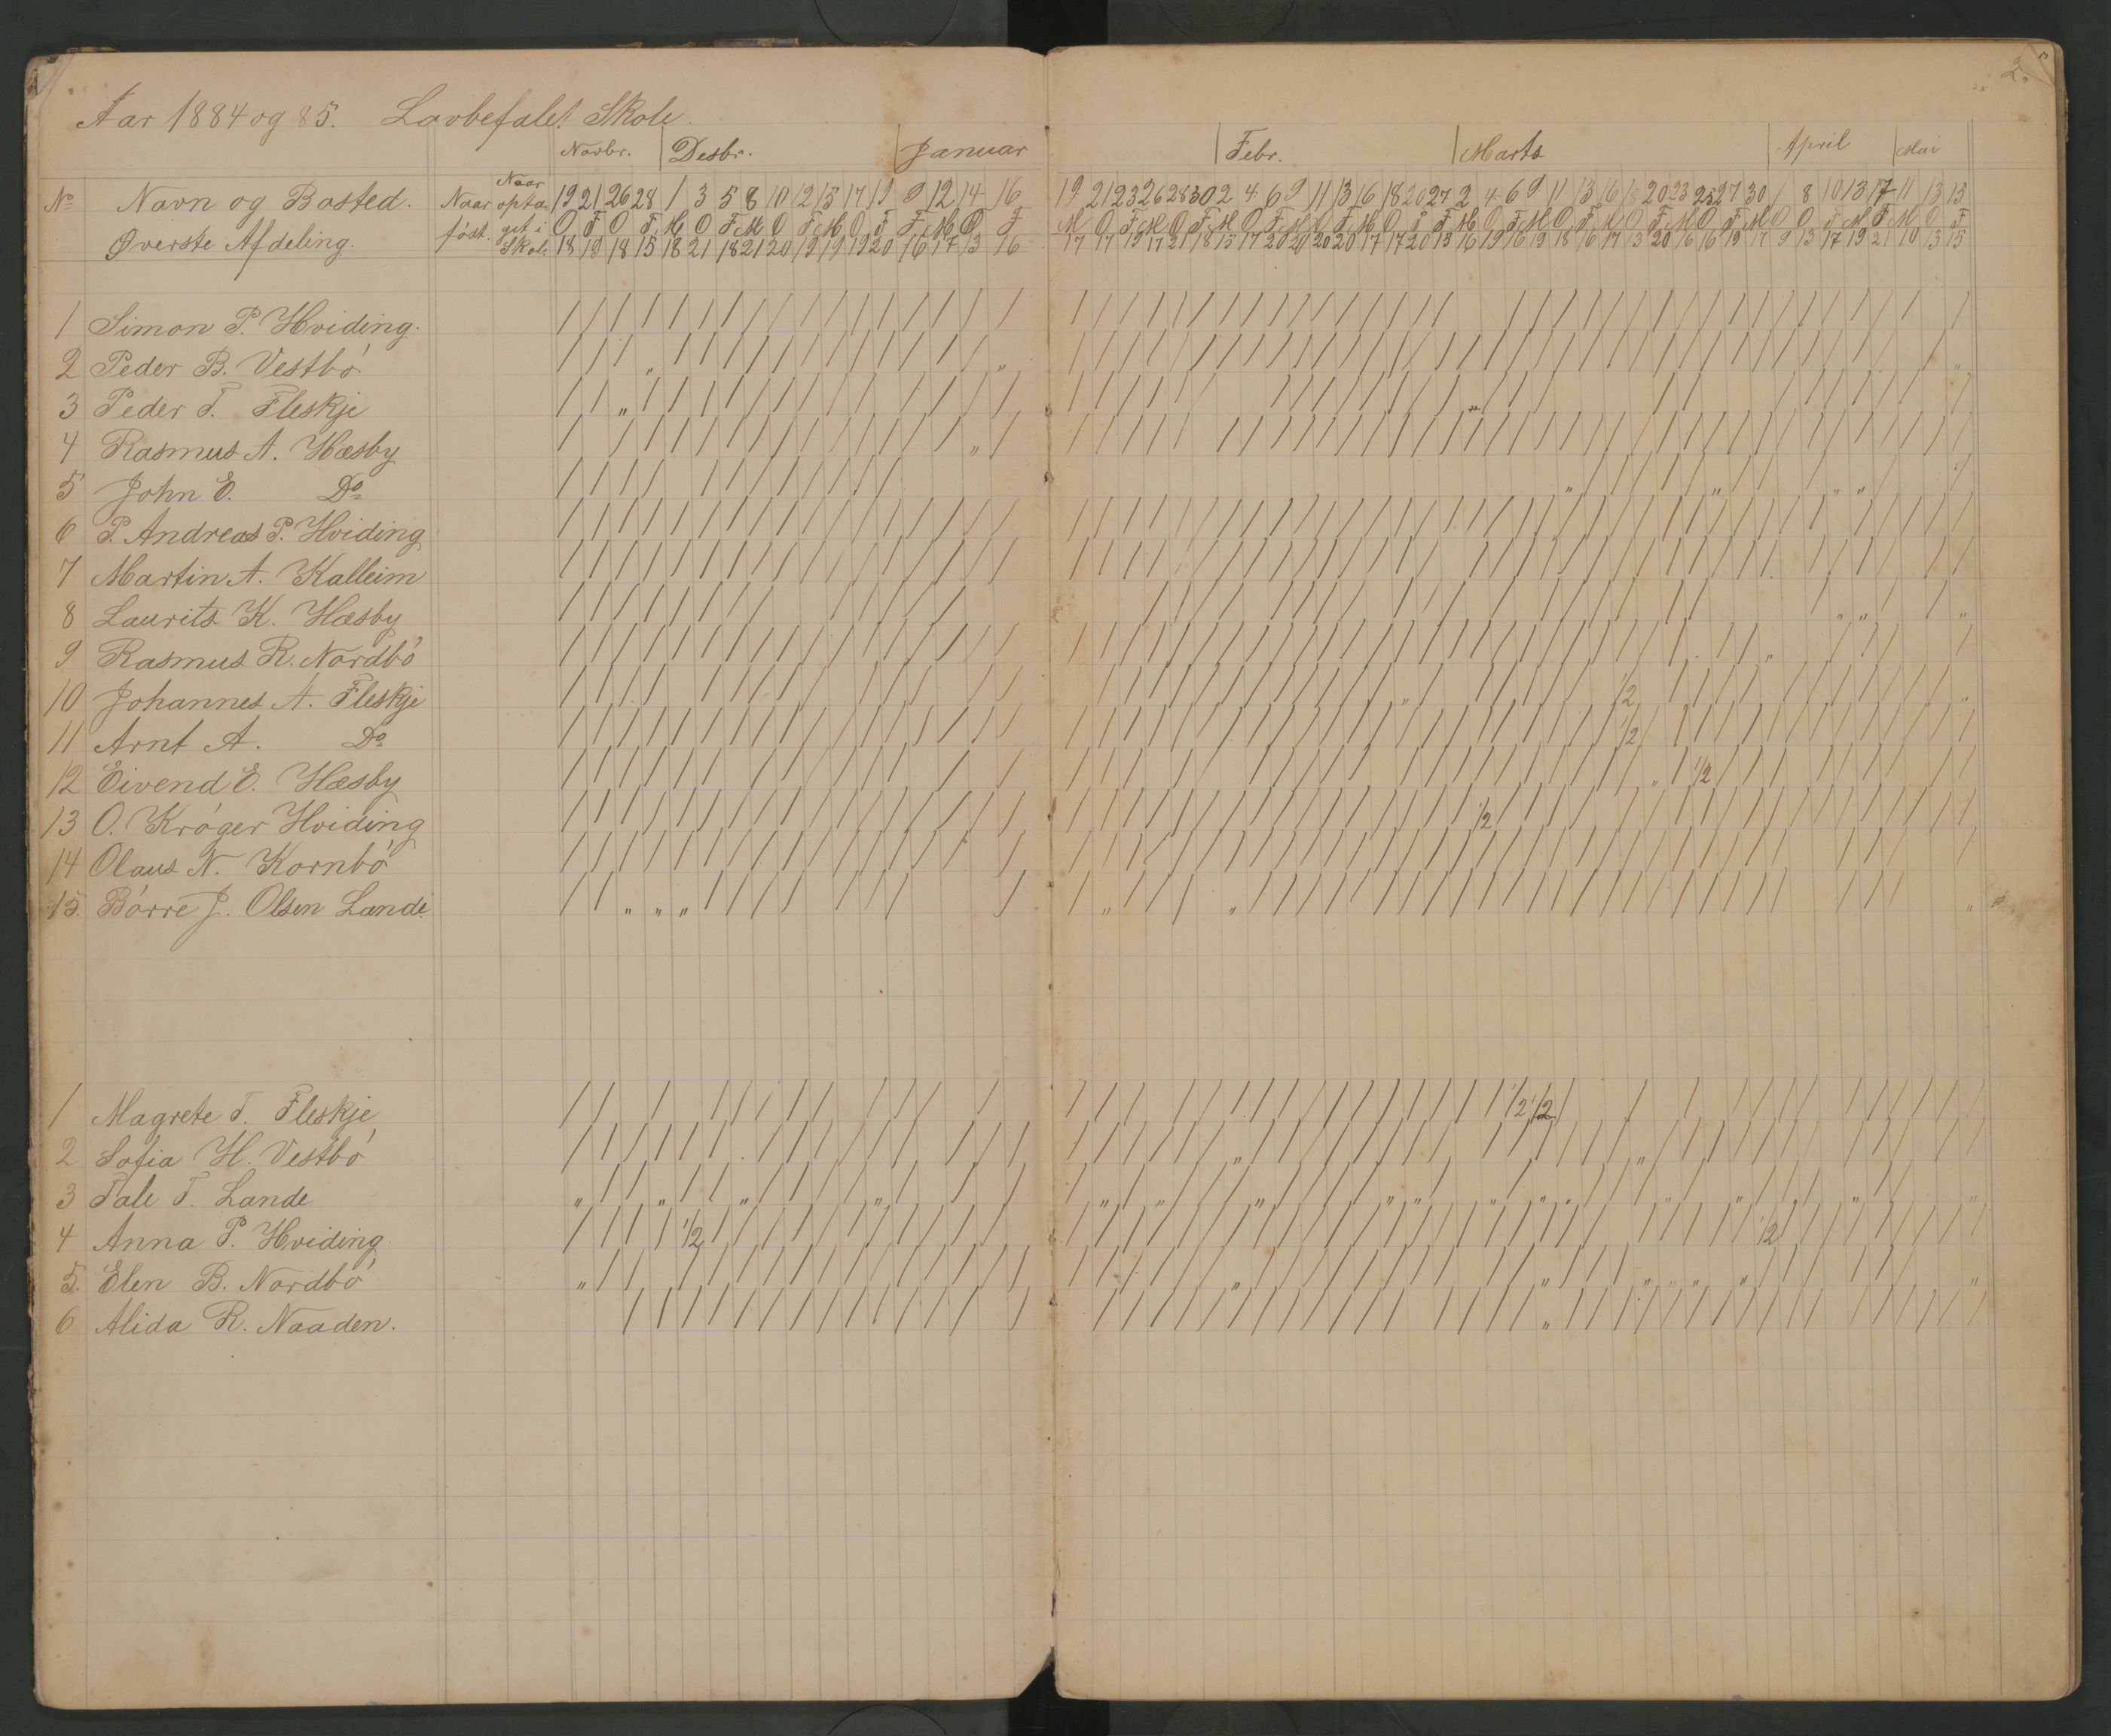 2.
Aar 1884 og 85. Lovbefalet Skole.
Novbr. Desbr. Januar Febr. Marts April Mai
No Navn og Bosted. Naar født. Naar optaget i Skol. 19 21 26 28 1 3 5 8 10 12 15 17 19 9 12 14 16 19 21 23 26 28 30 2 4 6 9 11 13 16 18 20 27 2 4 6 9 11 13 16 18 20 23 25 27 30 1 8 10 13 17 11 13 15
Øverste Afdeling. O F O F M O F M O F M O F F M O F M O F M O F M O F M O F M O F F M O F M O F M O F M O F M O O F M F M O F
18 19 18 15 18 21 18 21 20 19 19 19 20 16 17 13 16 17 17 19 17 21 18 15 17 20 20 20 20 17 17 20 13 16 19 16 19 18 16 17 13 20 16 16 19 17 9 13 17 19 21 10 13 15
1 Simon P. Hviding.
2 Peder B. Vestbó
3 Peder T. Fleskje
4 Rasmus A. Hæsby
5 John E. Do
6 P. Andreas P. Hviding
7 Martin A. Kalleim
8 Laurits K. Hæsby
9 Rasmus R. Nordbó
10 Johannes A. Fleskje 1/2
11 Arnt A. Do 1/2
12 Eivend E. Hæsby 1/2
13 O. Króger Hviding 1/2
14 Olaus N. Kornbó
15. Bórre J. Olsen Lande
1 Magrete T. Fleskje 1/2 1/2
2 Sofia H. Vestbó
3 Tale T. Lande
4 Anna P. Hviding 1/2 1/2
5. Elen B. Nordbó
6 Alida R. Naaden.